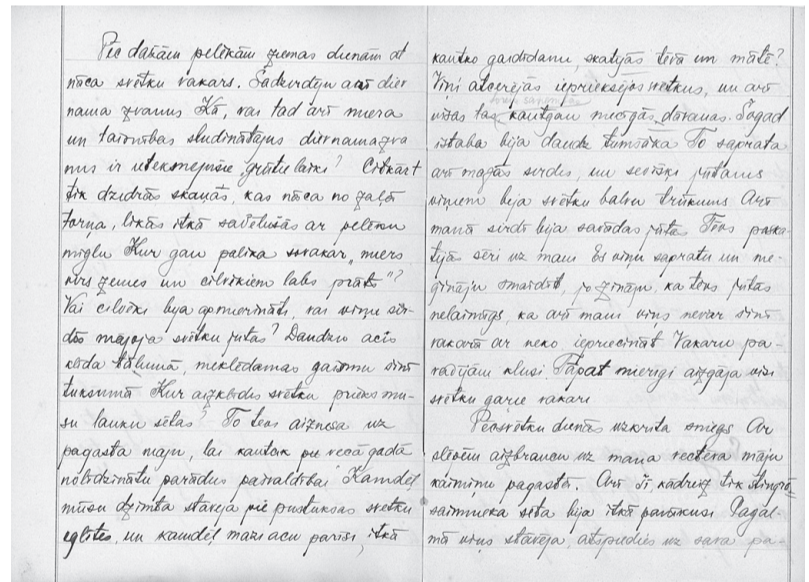 Pēc dažām pelēkām ziemas dienām at
nāca svētku vakars. Sadzirdēju arī diev
nama zvanus Kā, vai tad arī miera
un taisnības sludinātājus dievnama zva
nus ir ietekmējušie „grūtie laiki? Citkārt
tik dzidrās skaņās, kas nāca no zaļā
torņa, likās itkā savēlušās ar pelēku
miglu Kur gan palika šovakar „miers
virs zemes un cilvēkiem labs prāts"?
Vai cilvēki bija apmierināti, vai viņu sir-
dīs mājoja svētku jutas? Daudzu acis
klīda tālumā, meklēdamas gaismu šinī
tuksumā Kur aizklīdis svētku prieks mū-
su lauku sētās? To tēvs aiznesa uz
pagasta māju, lai kautcik pie vecā gadā
nolīdzinātu parādus pašvaldībai Kamdēļ
mūsu dzimta stāvēja pie pustukšas svētku
eglītes, un kamdēļ mazi acu pārīši, itkā
kautko gaidīdami skatījās tēvā un mātē?
Viņi atcerējās iepriekšējos svētkus, un arī
viņas tās kautgan niecīgās dāvanas. Šogad
istaba bija daudz tumšāka To saprata
arī mazās sirdis, un sevišķi jūtams
viņiem bija svētku balvu trūkums Arī
manā sirdī bija savādas jūtas Tēvs paska-
tījās sēri uz mani Es viņu sapratu un mē-
ģināju smaidīt, jo zināju, ka tēvs jūtas
nelaimīgs, ka arī mani viņš nevar šinī
vakarā ar neko iepriecināt Vakaru pa-
vadījām klusi. Tāpat mierīgi aizgāja visi
svētku garie vakari
Pēcsvētku dienās uzkrita sniegs Ar
slēpēm aizbraucu uz mana vectēva māju
kaimiņu pagastā. Arī šī, kādreiz tik stingrā
saimnieka sēta bija itkā pārvērtusi Pagal-
mā viņš stāvēja, atspiedies uz sava pa-